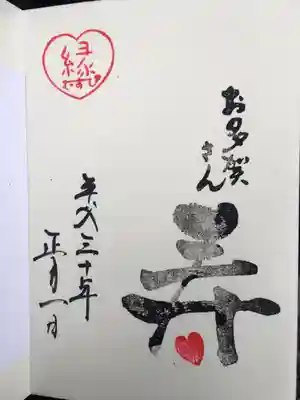 お多賀
さん
寿
平成三十年
正月一日
縁
むすび